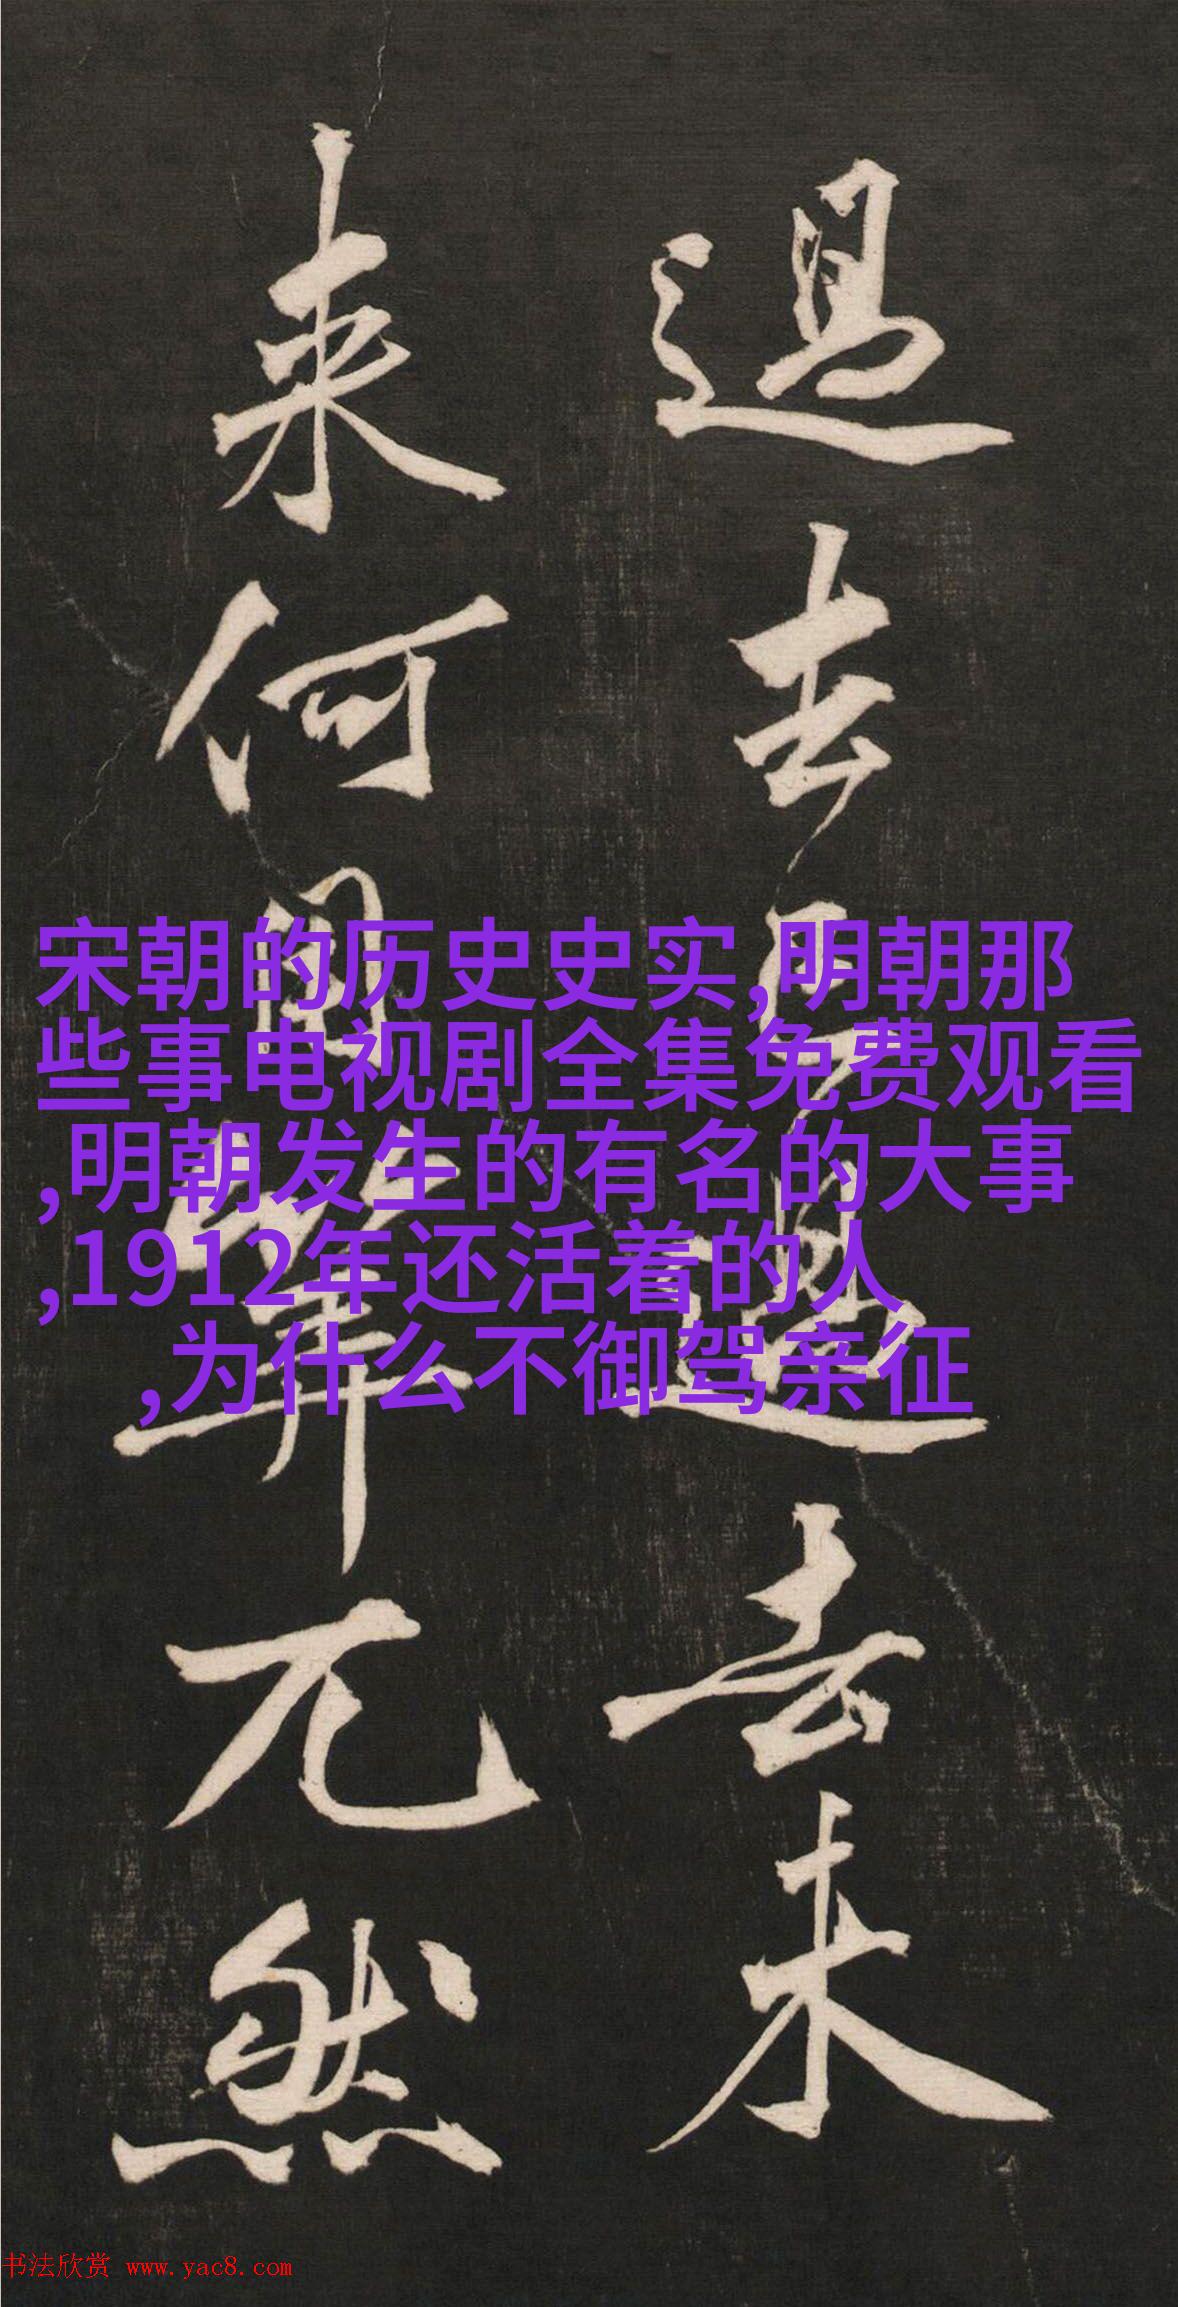 過去已過去未
来何用筭兀然
宋朝的历史史实,明朝那
些事电视剧全集免费观看
,明朝发生的有名的大事
,1912年还活着的人
,为什么不御驾亲征
书法欣赏 www.yac8.com